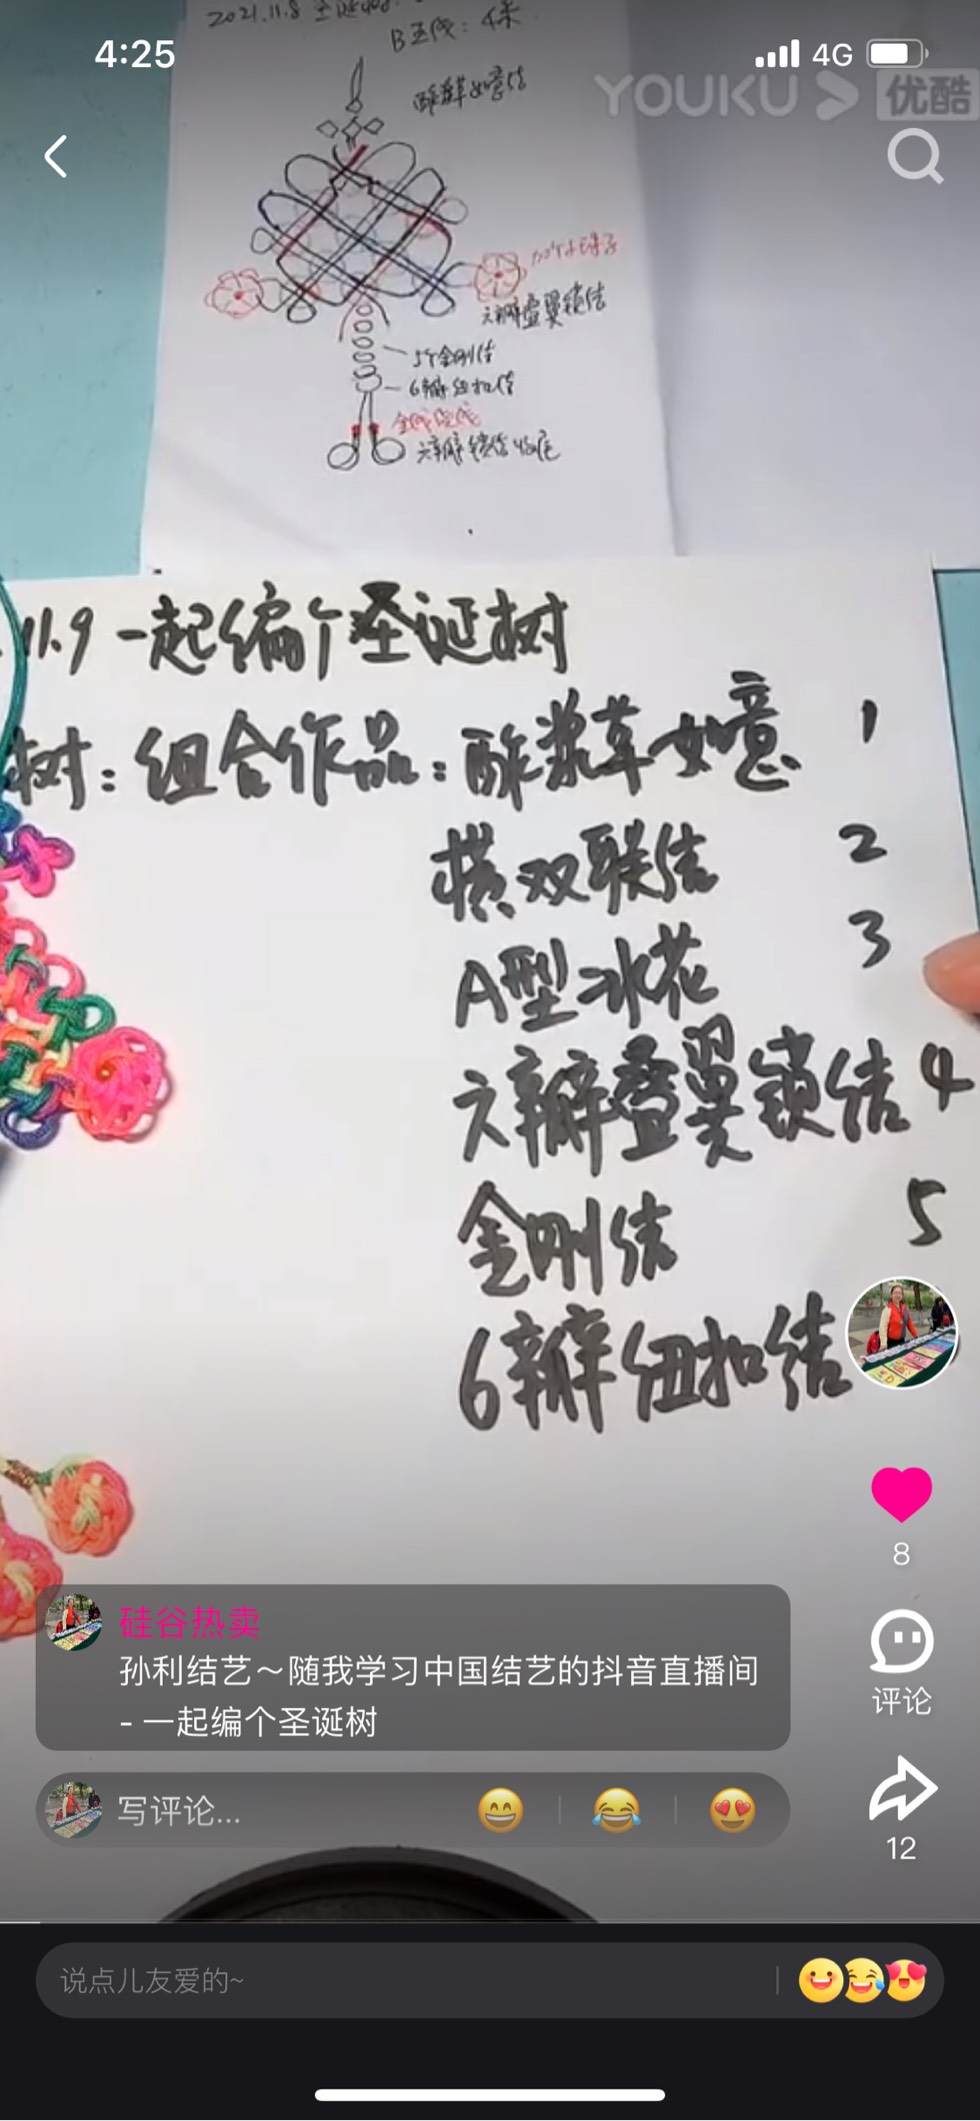 2021.11.8 圣诞
4:25
4G
B玉线：4米
YOUKU 优酷
酢浆草如意结
加个小珠子
六瓣叠翼锁结
5个金刚结
6瓣纽扣结
金线绕线
六瓣锁结收尾
11.9 一起编个圣诞树
树：组合作品：酢浆草如意 1
横双联结 2
A型冰花 3
六瓣叠翼锁结 4
金刚结 5
6瓣纽扣结
8
硅谷热卖
孙利结艺～随我学习中国结艺的抖音直播间
- 一起编个圣诞树
评论
写评论...
12
说点儿友爱的~